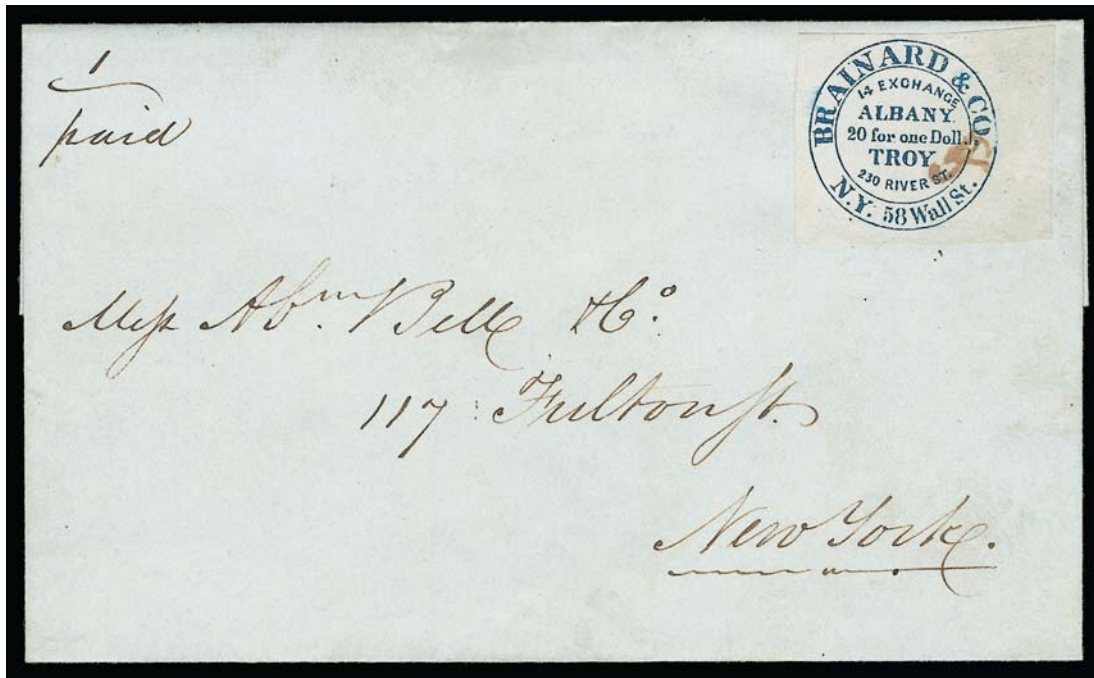 1
paid
BRAINARD & CO.
14 EXCHANGE
ALBANY.
20 for one Doll.
TROY
230 RIVER ST.
N.Y. 58 Wall St.
Mess Abm. Bell & Co.
117 Fulton St.
New York.